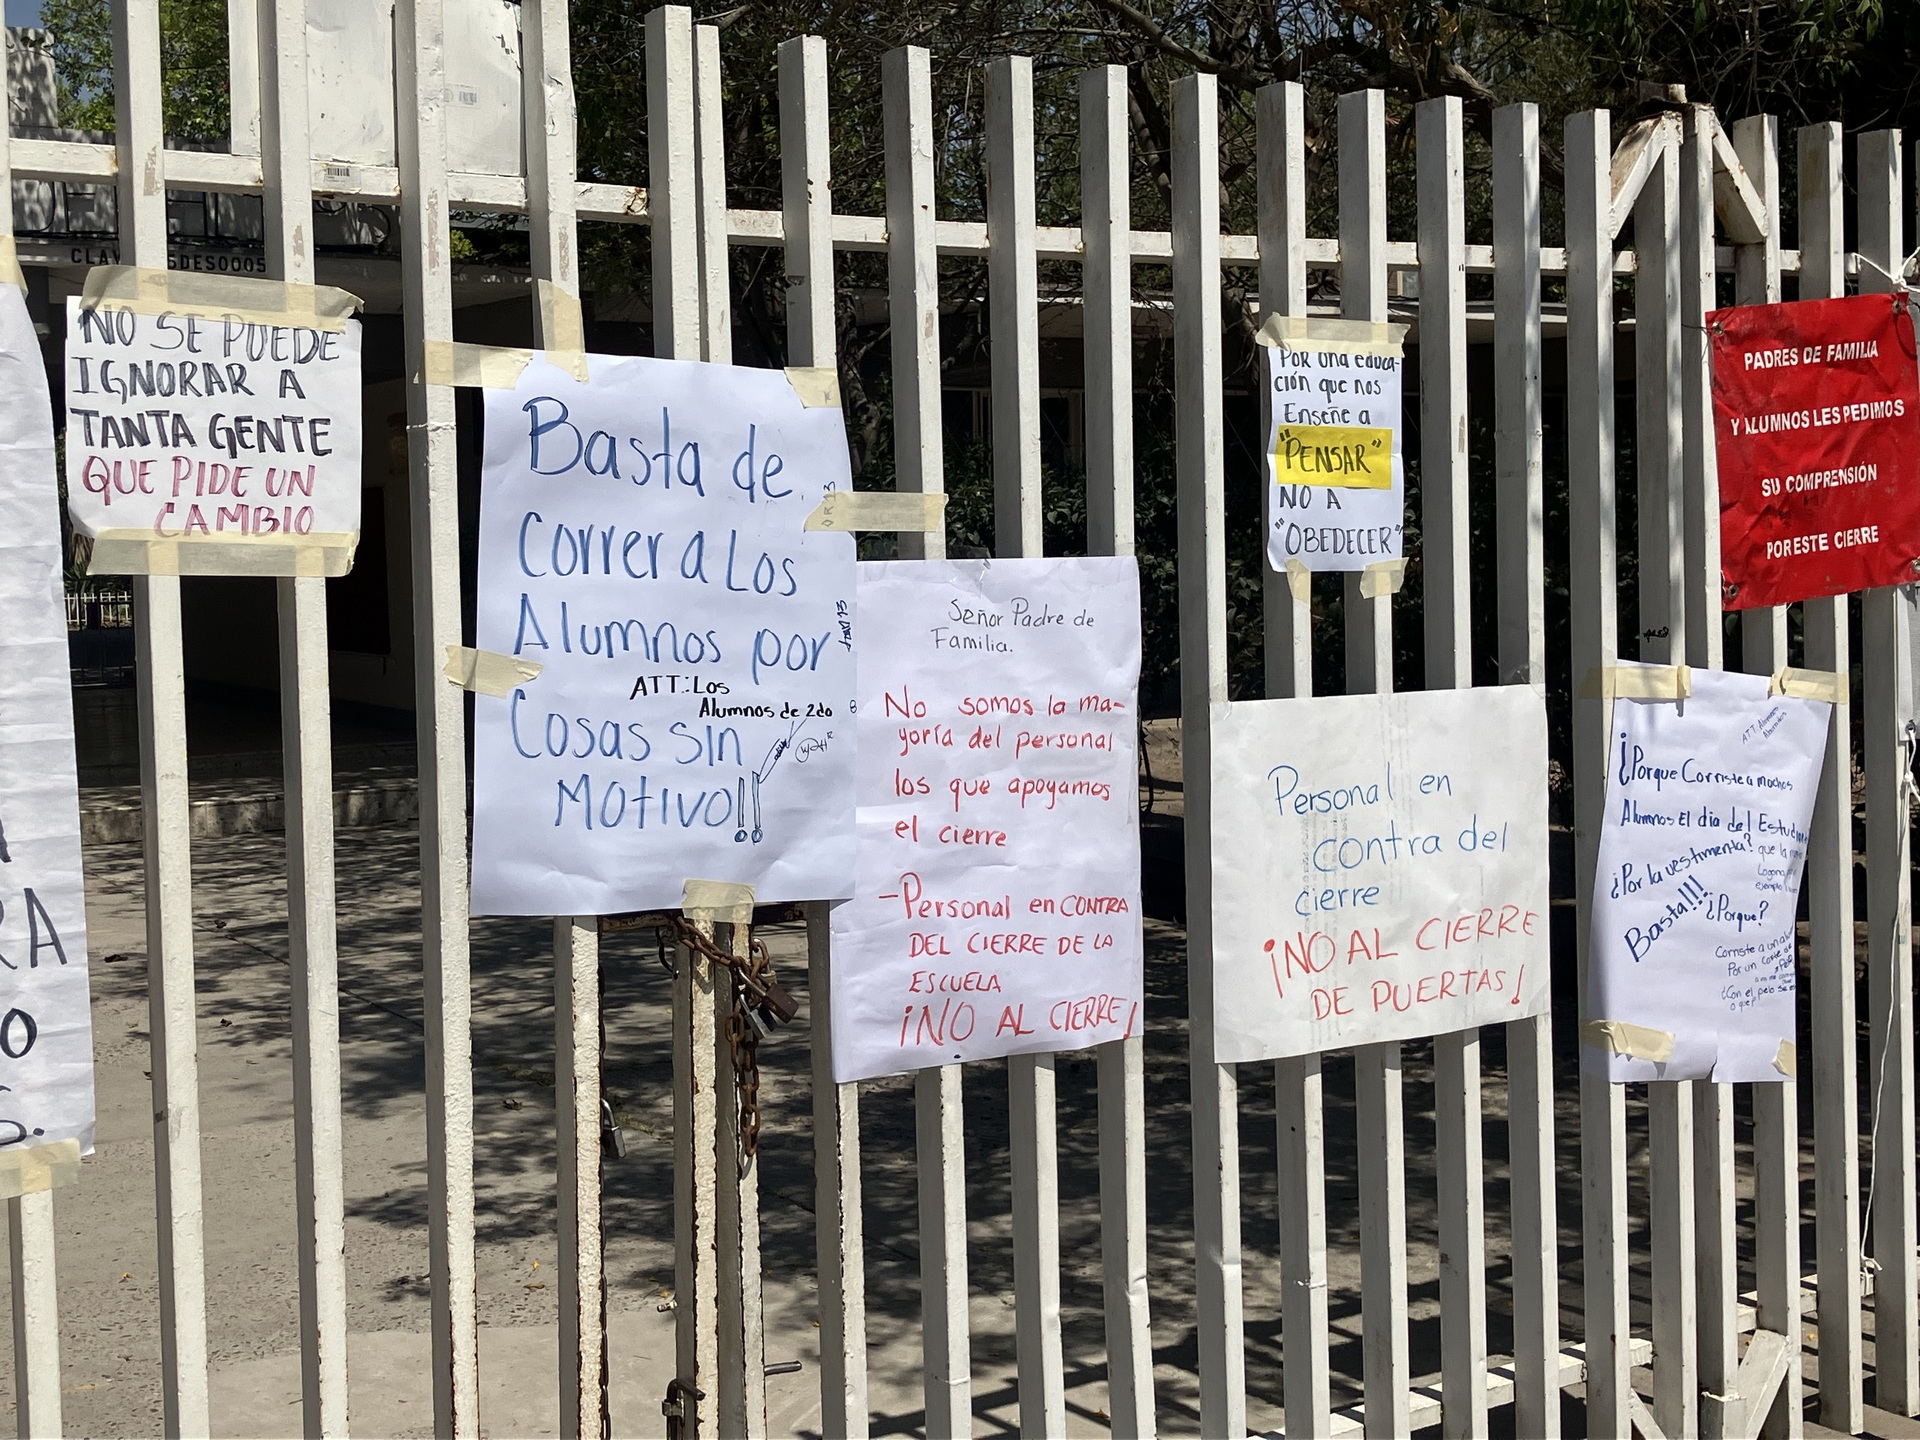 5DES0005
NO SE PUEDE
IGNORAR A
TANTA GENTE
QUE PIDE UN
CAMBIO
RA
O
S.
Basta de
Correr a Los
Alumnos por
ATT.: Los
Alumnos de 2do
Cosas sin
Motivo!!
Señor Padre de
Familia.
No somos la ma-
yoría del personal
los que apoyamos
el cierre
- Personal en CONTRA
DEL CIERRE DE LA
ESCUELA
¡NO AL CIERRE!
Por una educa-
ción que nos
Enseñe a
"PENSAR"
NO A
"OBEDECER"
Personal en
contra del
cierre
¡NO AL CIERRE
DE PUERTAS!
PADRES DE FAMILIA
Y ALUMNOS LES PEDIMOS
SU COMPRENSIÓN
POR ESTE CIERRE
ATT: Alumnos
¿Porque Corriste a muchos
Alumnos El dia del
¿Por la vestimenta? que la
Basta!!! ¿Porque?
Corriste a un
Por un corte de
¿Con el pelo